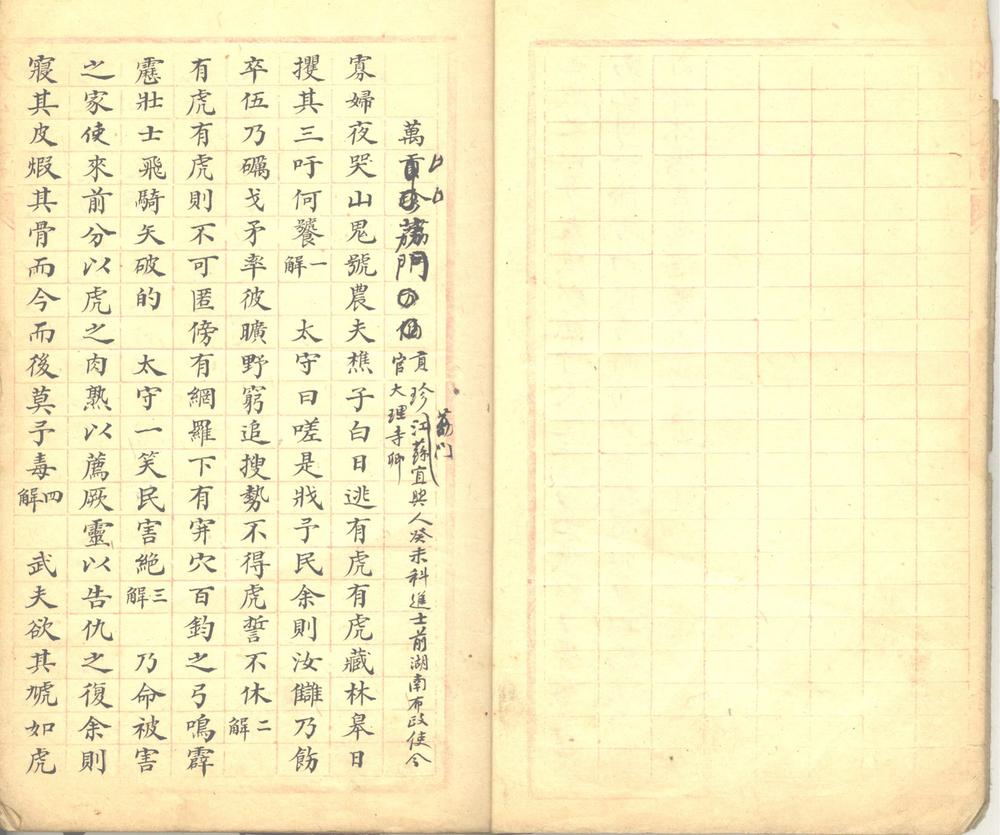 萬貢珍荔門の伯貢珍江蘇宜興人癸未科進士前湖南布政使今
官大理寺卿
荔门
寡婦夜哭山鬼號農夫樵子白日逃有虎有虎藏林皋日
攫其三吁何饕解一太守曰嗟是戕予民余則汝讎乃飭
卒伍乃礪戈矛率彼曠野窮追搜勢不得虎誓不休解二
有虎有虎則不可匿傍有網羅下有穽穴百鈞之弓鳴霹
靂壯士飛騎矢破的太守一笑民害絕解三乃命被害
之家使來前分以虎之肉熟以薦厥靈以告仇之復余則
寢其皮煅其骨而今而後莫予毒解四武夫欲其虓如虎